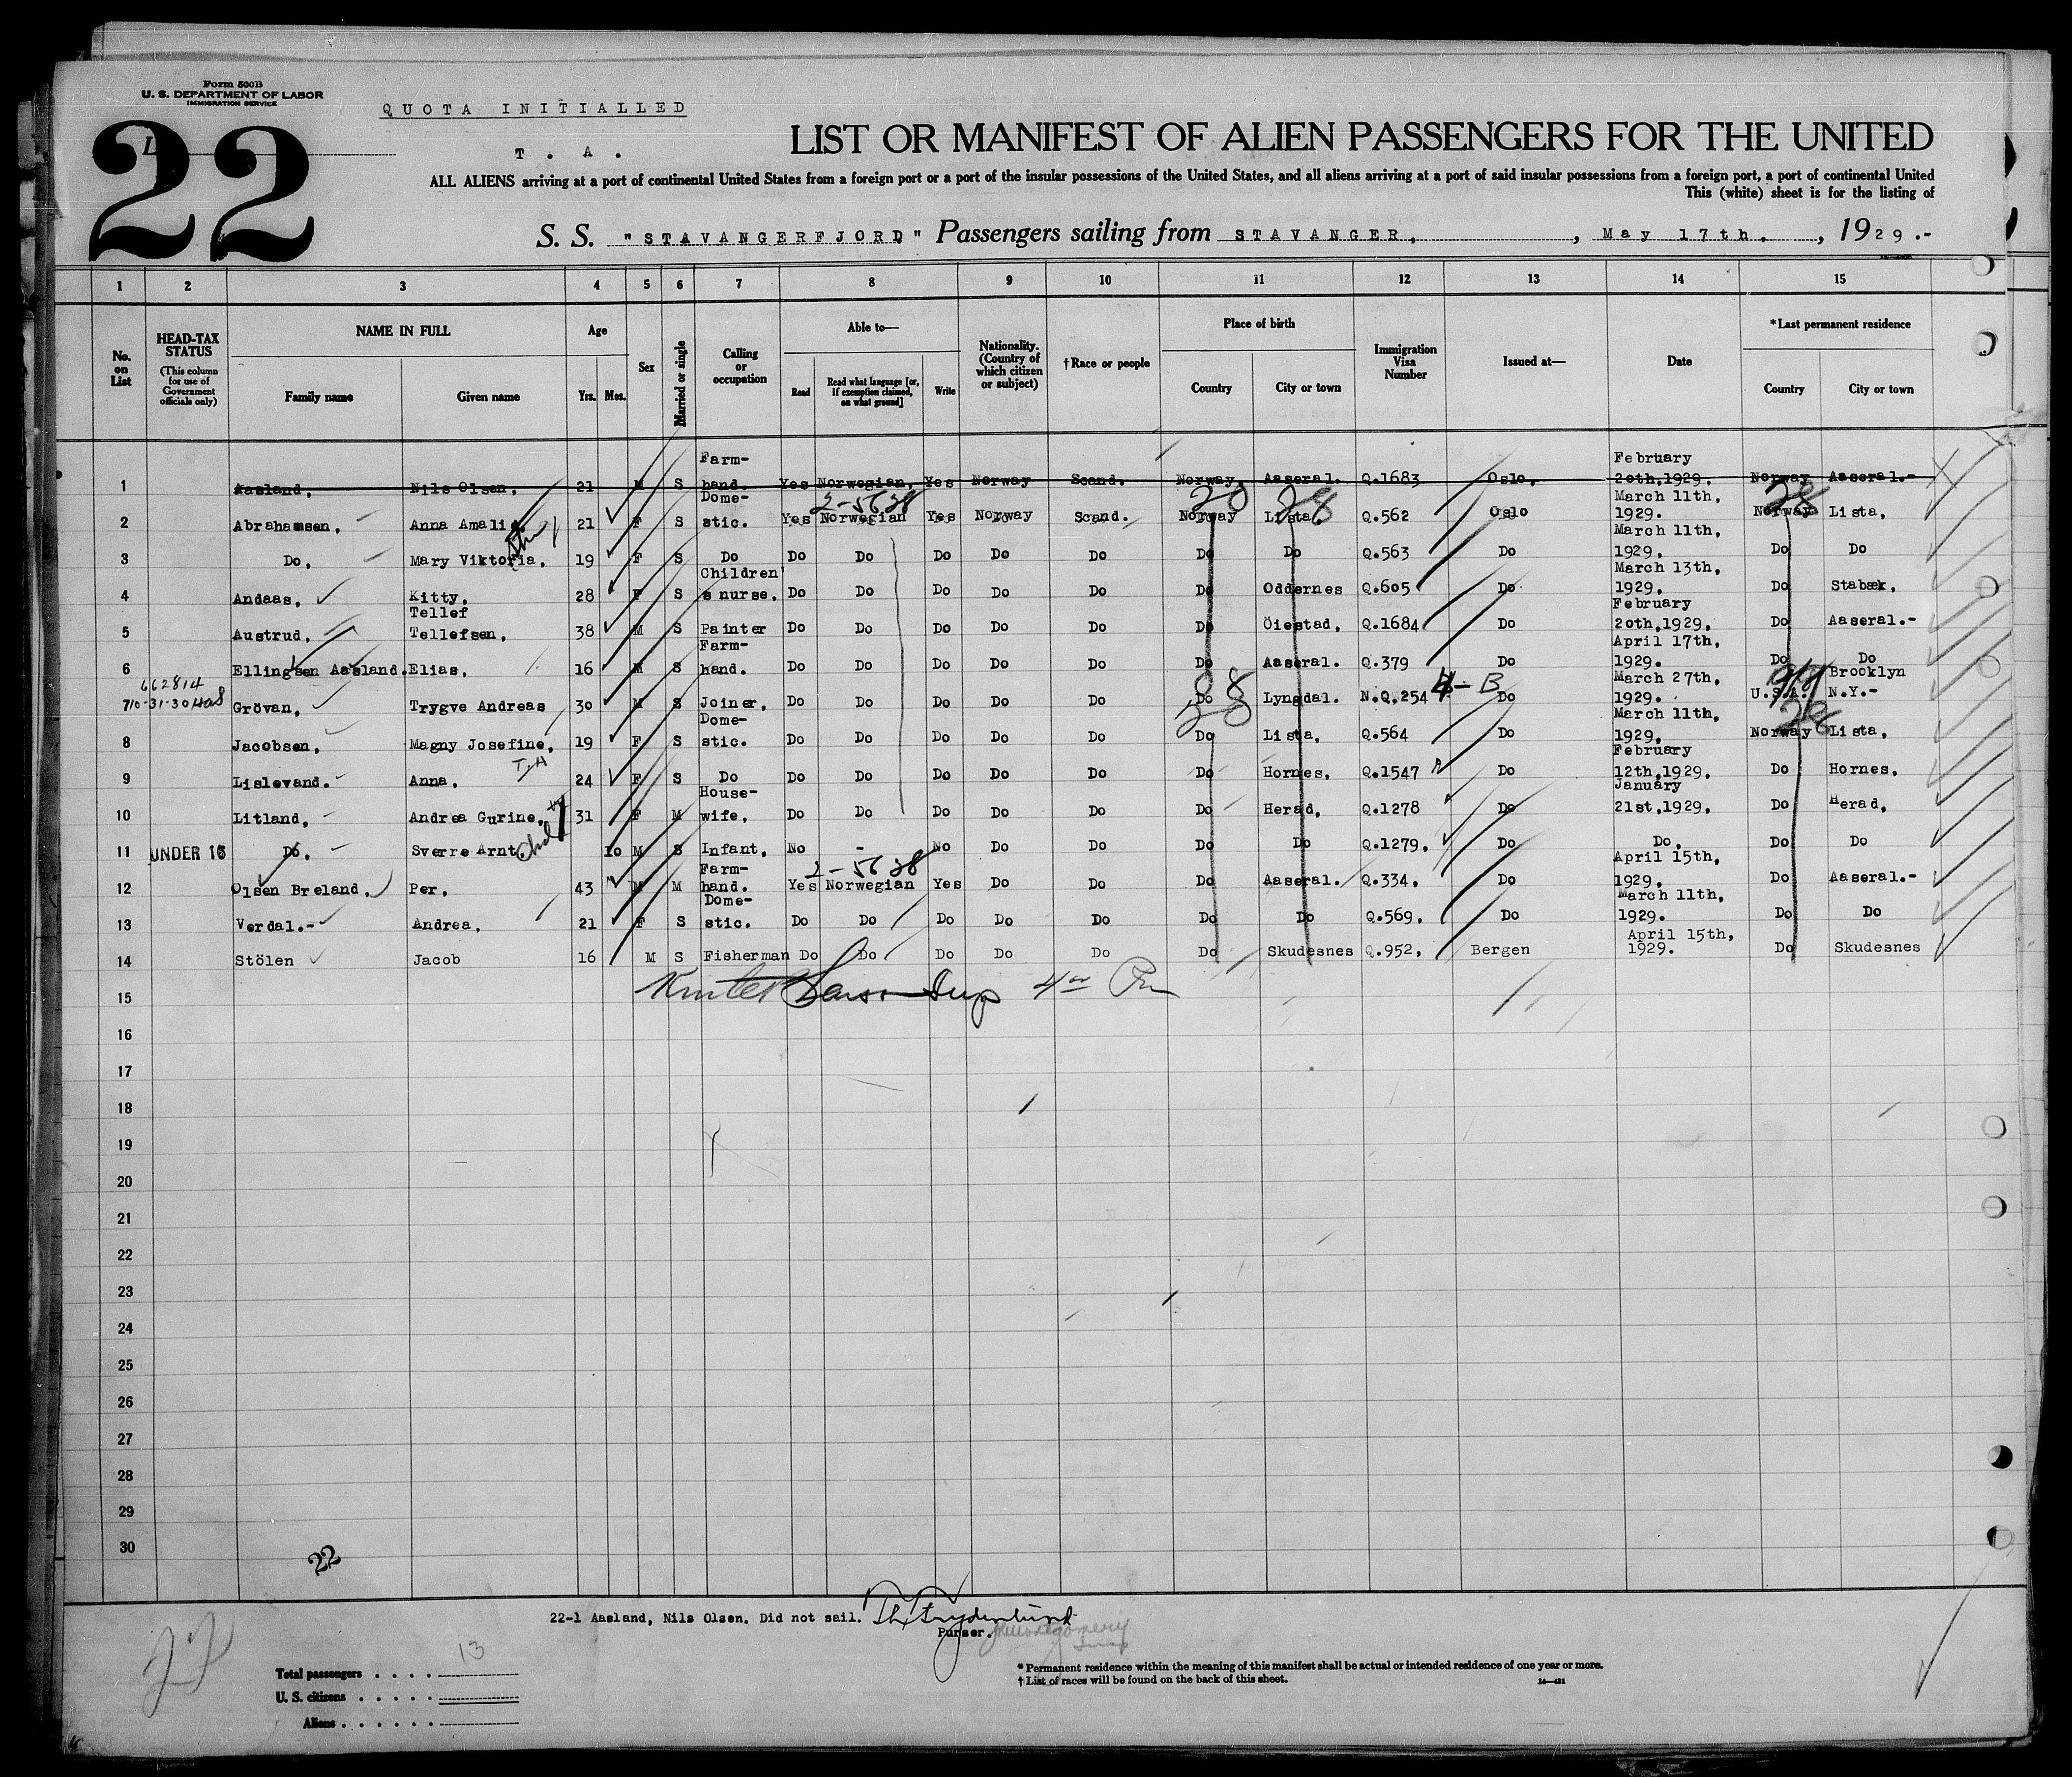 Form 500B
U. S. DEPARTMENT OF LABOR
IMMIGRATION SERVICE
QUOTA INITIALLED
22
T. A.
LIST OR MANIFEST OF ALIEN PASSENGERS FOR THE UNITED
ALL ALIENS arriving at a port of continental United States from a foreign port or a port of the insular possessions of the United States, and all aliens arriving at a port of said insular possessions from a foreign port, a port of continental United
This (white) sheet is for the listing of
S. S. "STAVANGERFJORD" Passengers sailing from STAVANGER, , May 17th, , 1929.-
1 2 3 4 5 6 7 8 9 10 11 12 13 14 15
No. on List HEAD-TAX STATUS (This column for use of Government officials only) NAME IN FULL Family name Given name Age Yrs. Mos. Sex Married or single Calling or occupation Able to— Read Read what language [or, if exemption claimed, on what ground] Write Nationality. (Country of which citizen or subject) †Race or people Place of birth Country City or town Immigration Visa Number Issued at— Date *Last permanent residence Country City or town
1 Aasland, Nils Olsen, 21 M S Farm-hand. Yes Norwegian, Yes Norway Scand. Norway, Aaseral. Q.1683 Oslo, February 20th,1929. Norway Aaseral.-
2-5628 20 28 28
2 Abrahamsen, Anna Amalie, 21 F S Dome-stic. Yes Norwegian Yes Norway Scand. Norway Lista, Q.562 Oslo March 11th, 1929. Norway Lista,
3 Do, Mary Viktoria, 19 F S Do Do Do Do Do Do Do Do Q.563 Do March 11th, 1929, Do Do
4 Andaas, Kitty, 28 F S Children's nurse, Do Do Do Do Do Do Oddernes Q.605 Do March 13th, 1929, Do Stabæk,
5 Austrud, Tellef Tellefsen, 38 M S Painter Do Do Do Do Do Do Öiestad, Q.1684 Do February 20th,1929, Do Aaseral.-
6 Ellingsen Aasland. Elias, 16 M S Farm-hand. Do Do Do Do Do Do Aaseral. Q.379 Do April 17th, 1929. Do Do
662814
7 10-31-30 Grövan, Trygve Andreas 30 M S Joiner, Do Do Do Do Do Do Lyngdal. N.Q.254 4-B Do March 27th, 1929. U.S.A. Brooklyn N.Y.-
8 Jacobsen, Magny Josefine, 19 F S Dome-stic. Do Do Do Do Do Do Lista, Q.564 Do March 11th, 1929, Norway Lista,
T.A
9 Lislevand. Anna, 24 F S Do Do Do Do Do Do Do Hornes, Q.1547 Do February 12th,1929, Do Hornes,
10 Litland, Andrea Gurine, 31 F M House-wife, Do Do Do Do Do Do Herad, Q.1278 Do January 21st,1929, Do Herad,
11 UNDER 16 Do, Sverre Arnt 10 M S Infant, No - No Do Do Do Do Q.1279, Do Do, Do Do
2-5628
12 Olsen Breland, Per, 43 M M Farm-hand. Yes Norwegian Yes Do Do Do Aaseral. Q.334, Do April 15th, 1929, Do Aaseral.-
13 Verdal.- Andrea, 21 F S Dome-stic. Do Do Do Do Do Do Do Q.569, Do March 11th, 1929. Do Do
14 Stölen Jacob 16 M S Fisherman Do Do Do Do Do Do Skudesnes Q.952, Bergen April 15th, 1929. Do Skudesnes
15
16
17
18
19
20
21
22
23
24
25
26
27
28
29
30
22
22-1 Aasland, Nils Olsen. Did not sail.
Purser.
13
Total passengers . . . .
U. S. citizens . . . . .
Aliens . . . . . .
* Permanent residence within the meaning of this manifest shall be actual or intended residence of one year or more.
† List of races will be found on the back of this sheet.